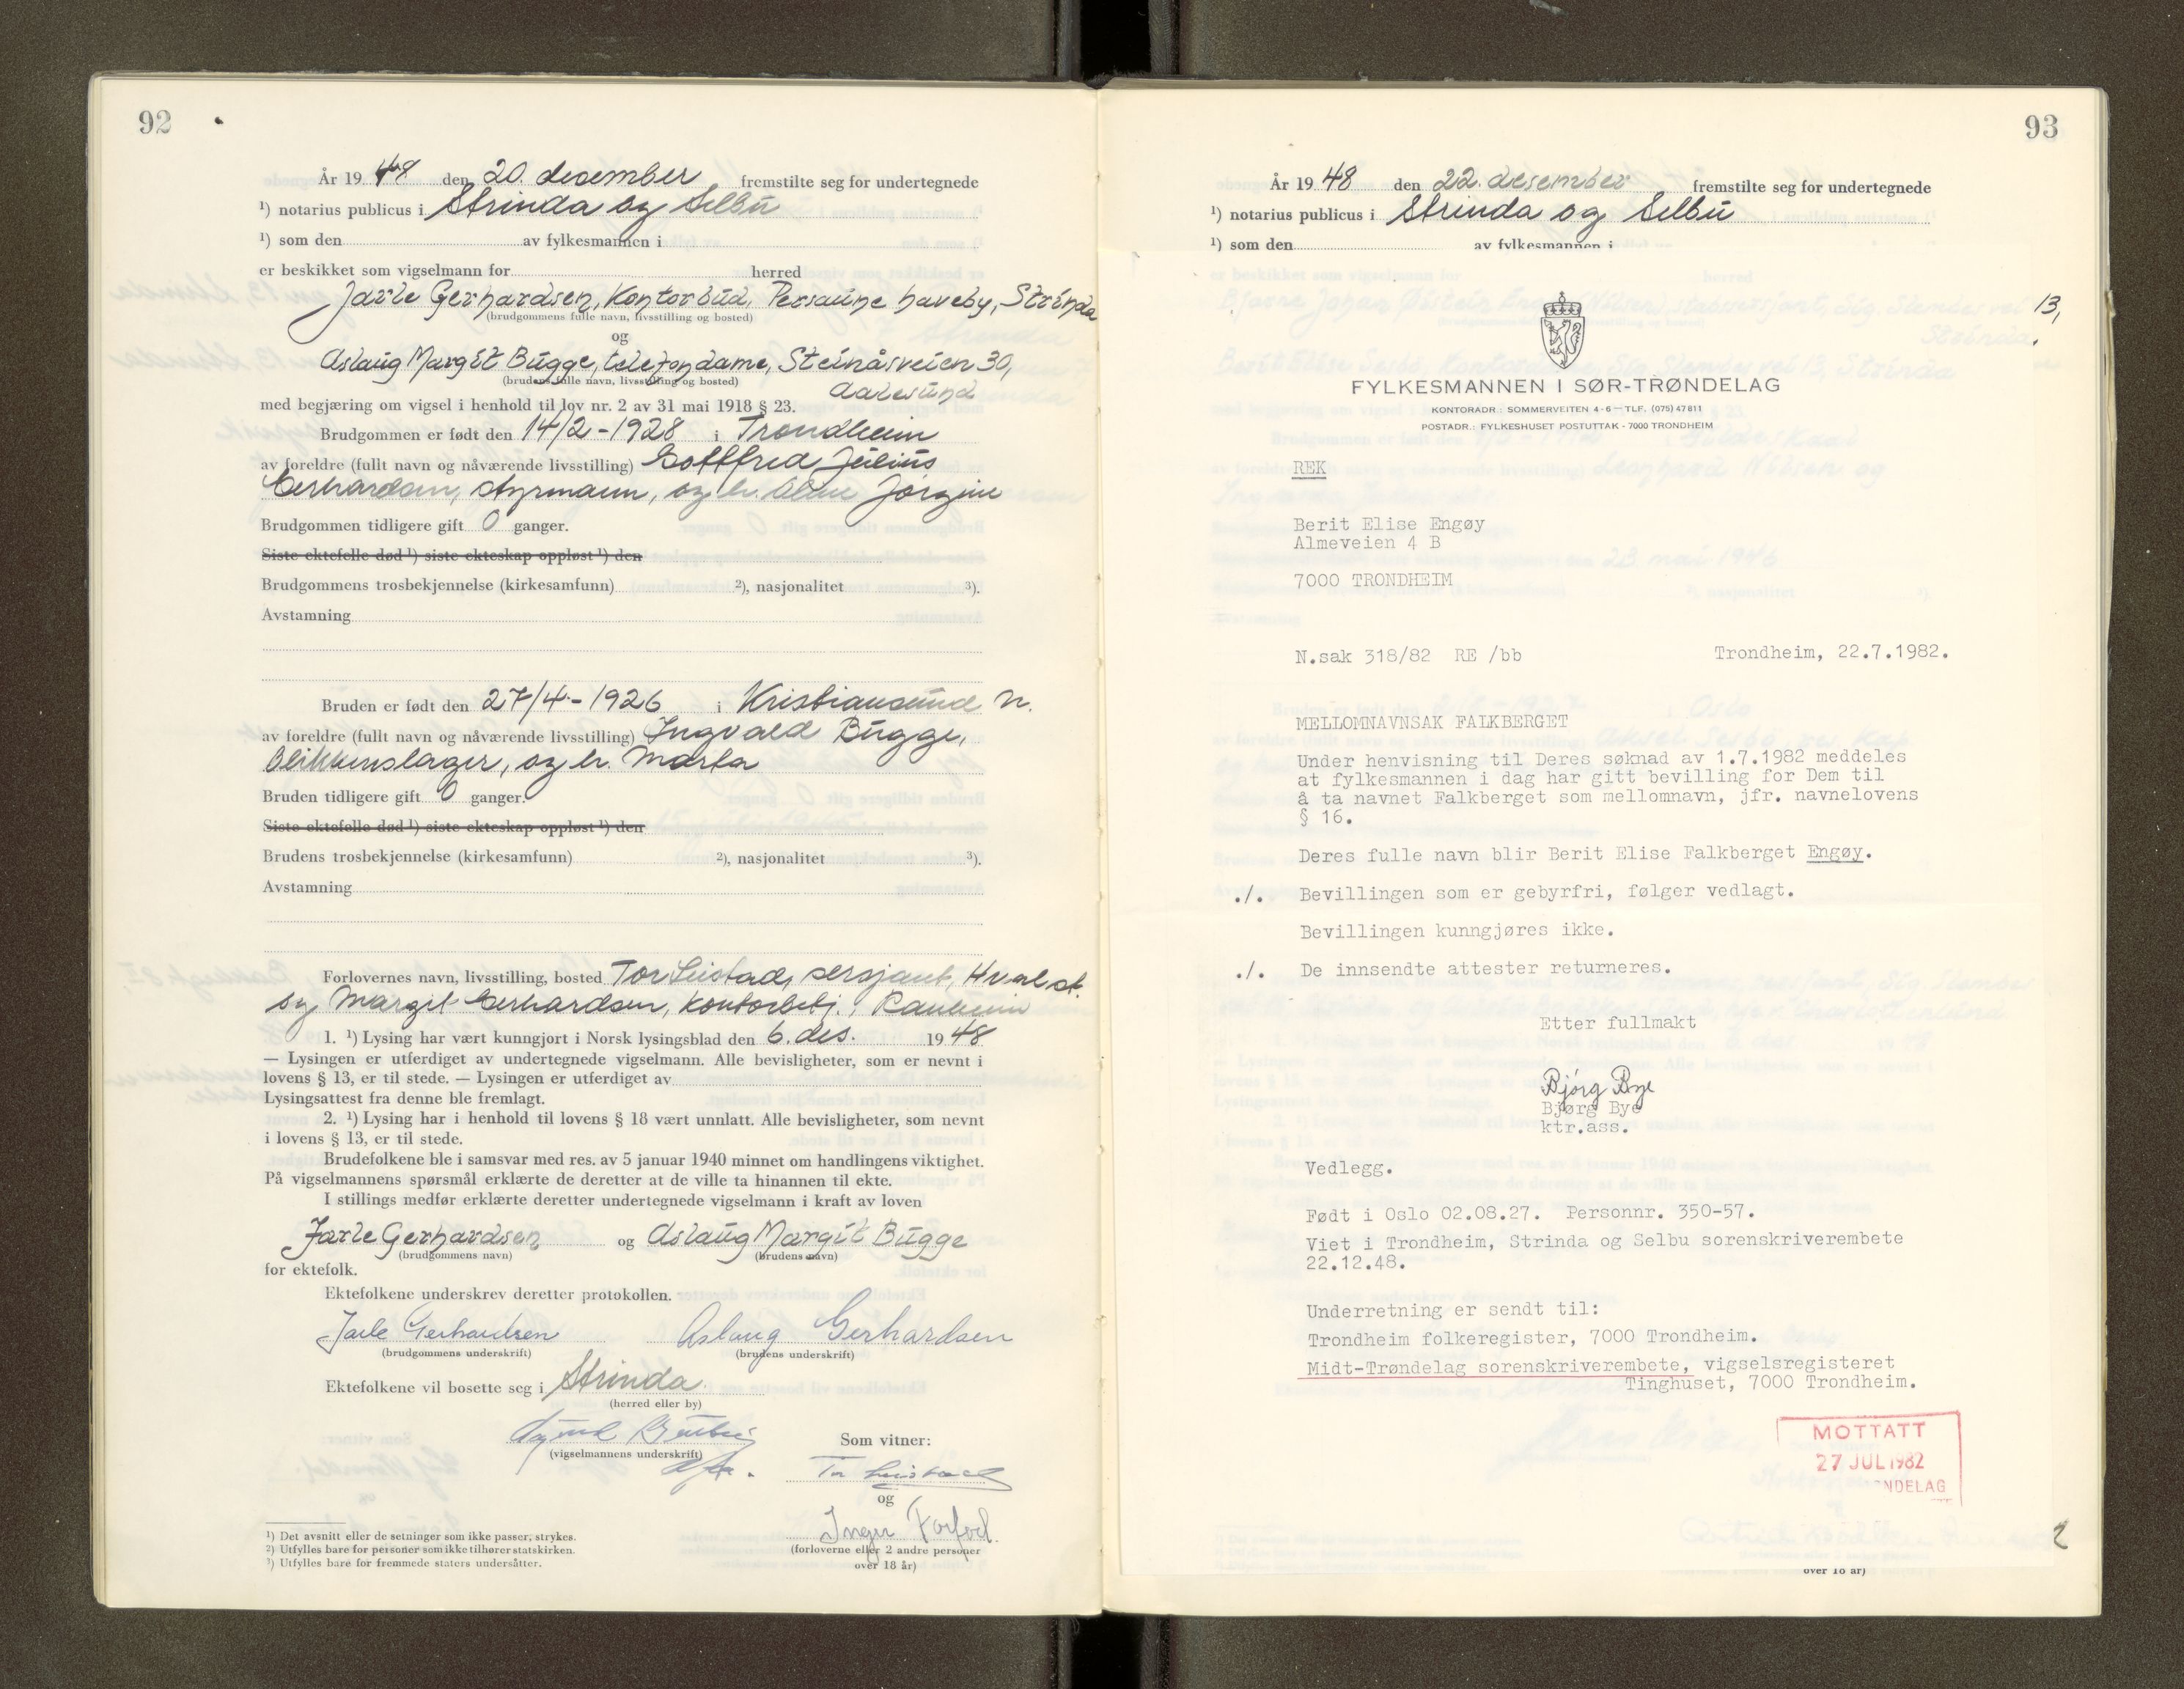 92
År 19 48 den 20. desember fremstilte seg for undertegnede
¹) notarius publicus i Strinda og Selbu
¹) som den av fylkesmannen i
er beskikket som vigselmann for herred
Jarle Gerhardsen, Kontorbud, Persaune haveby, Strinda
(brudgommens fulle navn, livsstilling og bosted)
og
Aslaug Margit Bugge, telefondame, Steinåsveien 30,
(brudens fulle navn, livsstilling og bosted)
Aalesund
med begjæring om vigsel i henhold til lov nr. 2 av 31 mai 1918 § 23.
Brudgommen er født den 14/2-1928 i Trondheim
av foreldre (fullt navn og nåværende livsstilling) Gottfred Julius
Gerhardsen, styrmann, og h. Jørgine
Brudgommen tidligere gift 0 ganger.
Siste ektefelle død ¹) siste ekteskap oppløst ¹) den
Brudgommens trosbekjennelse (kirkesamfunn) ²), nasjonalitet ³).
Avstamning
Bruden er født den 27/4-1926 i Kristiansund N.
av foreldre (fullt navn og nåværende livsstilling) Ingvald Bugge,
blikkenslager, og h. Marta
Bruden tidligere gift 0 ganger.
Siste ektefelle død ¹) siste ekteskap oppløst ¹) den
Brudens trosbekjennelse (kirkesamfunn) ²), nasjonalitet ³).
Avstamning
Forlovernes navn, livsstilling, bosted Tor Leistad, sersjant, Hvalst.
og Margit Gerhardsen, kontorbetj., Ranheim
1. ¹) Lysing har vært kunngjort i Norsk lysingsblad den 6. des. 19 48
— Lysingen er utferdiget av undertegnede vigselmann. Alle bevisligheter, som er nevnt i
lovens § 13, er til stede. — Lysingen er utferdiget av
Lysingsattest fra denne ble fremlagt.
2. ¹) Lysing har i henhold til lovens § 18 vært unnlatt. Alle bevisligheter, som nevnt
i lovens § 13, er til stede.
Brudefolkene ble i samsvar med res. av 5 januar 1940 minnet om handlingens viktighet.
På vigselmannens spørsmål erklærte de deretter at de ville ta hinannen til ekte.
I stillings medfør erklærte deretter undertegnede vigselmann i kraft av loven
Jarle Gerhardsen og Aslaug Margit Bugge
(brudgommens navn) (brudens navn)
for ektefolk.
Ektefolkene underskrev deretter protokollen.
Jarle Gerhardsen Aslaug Gerhardsen
(brudgommens underskrift) (brudens underskrift)
Ektefolkene vil bosette seg i Strinda.
(herred eller by)
(vigselmannens underskrift)
Som vitner:
Tor Leistad
og
Inger Forfod.
(forloverne eller 2 andre personer
over 18 år)
¹) Det avsnitt eller de setninger som ikke passer, strykes.
²) Utfylles bare for personer som ikke tilhører statskirken.
³) Utfylles bare for fremmede staters undersåtter.
93
År 19 48 den 22. desember fremstilte seg for undertegnede
¹) notarius publicus i Strinda og Selbu
¹) som den av fylkesmannen i
13,
FYLKESMANNEN I SØR-TRØNDELAG
KONTORADR.: SOMMERVEITEN 4-6 — TLF. (075) 47811
POSTADR.: FYLKESHUSET POSTUTTAK - 7000 TRONDHEIM
REK
Berit Elise Engøy
Almeveien 4 B
7000 TRONDHEIM
N.sak 318/82 RE /bb Trondheim, 22.7.1982.
MELLOMNAVNSAK FALKBERGET
Under henvisning til Deres søknad av 1.7.1982 meddeles
at fylkesmannen i dag har gitt bevilling for Dem til
å ta navnet Falkberget som mellomnavn, jfr. navnelovens
§ 16.
Deres fulle navn blir Berit Elise Falkberget Engøy.
./. Bevillingen som er gebyrfri, følger vedlagt.
Bevillingen kunngjøres ikke.
./. De innsendte attester returneres.
Etter fullmakt
Bjørg Bye
Bjørg Bye
ktr.ass.
Vedlegg.
Født i Oslo 02.08.27. Personnr. 350-57.
Viet i Trondheim, Strinda og Selbu sorenskriverembete
22.12.48.
Underretning er sendt til:
Trondheim folkeregister, 7000 Trondheim.
Midt-Trøndelag sorenskriverembete, vigselsregisteret
Tinghuset, 7000 Trondheim.
MOTTATT
27 JUL 1982
NDELAG
over 18 år)